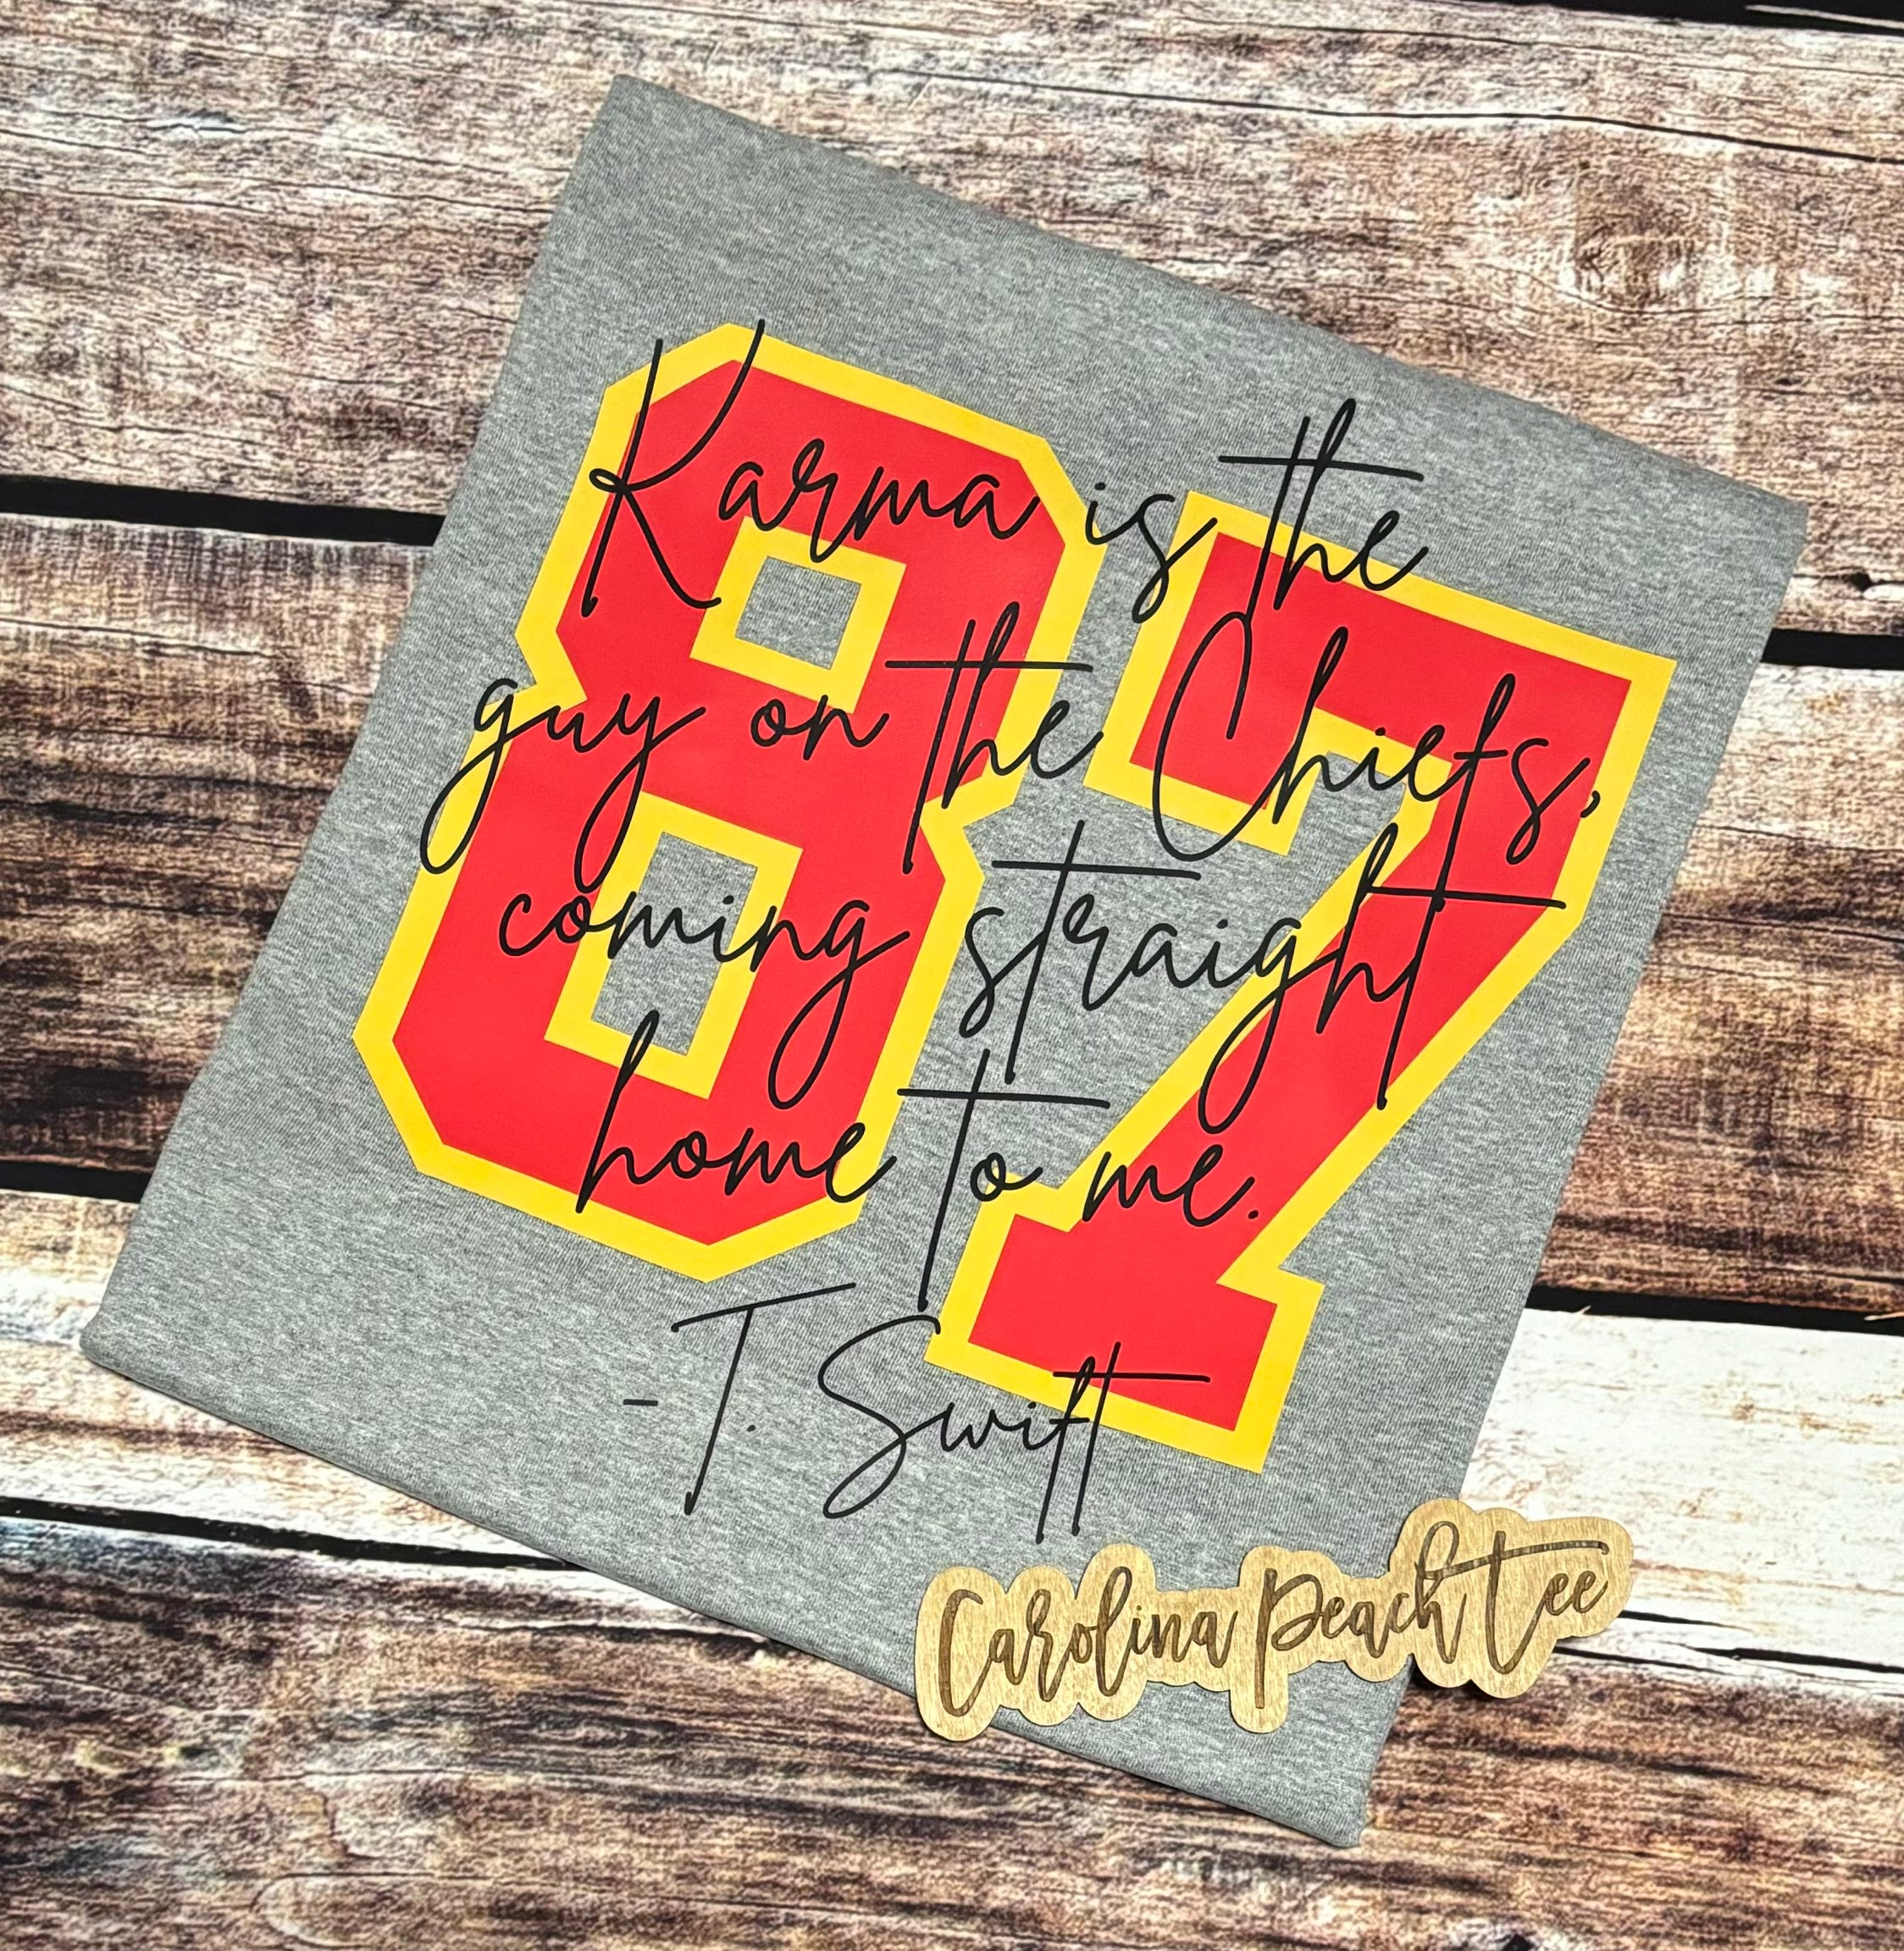 87
Karma is the
guy on the Chiefs,
coming straight
home to me.
-T. Swift
Carolina Peach Tee